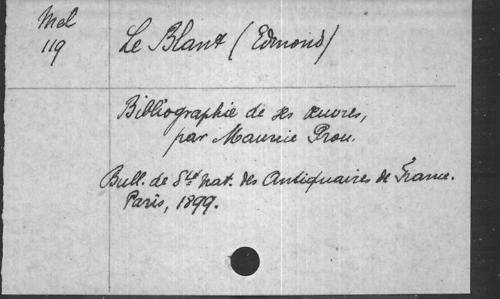 Mel
119
Le Blant (Edmond)
Bibliographie de ses œuvres,
par Maurice Prou.
Bull. de Sté nat. des Antiquaires de France.
Paris, 1899.